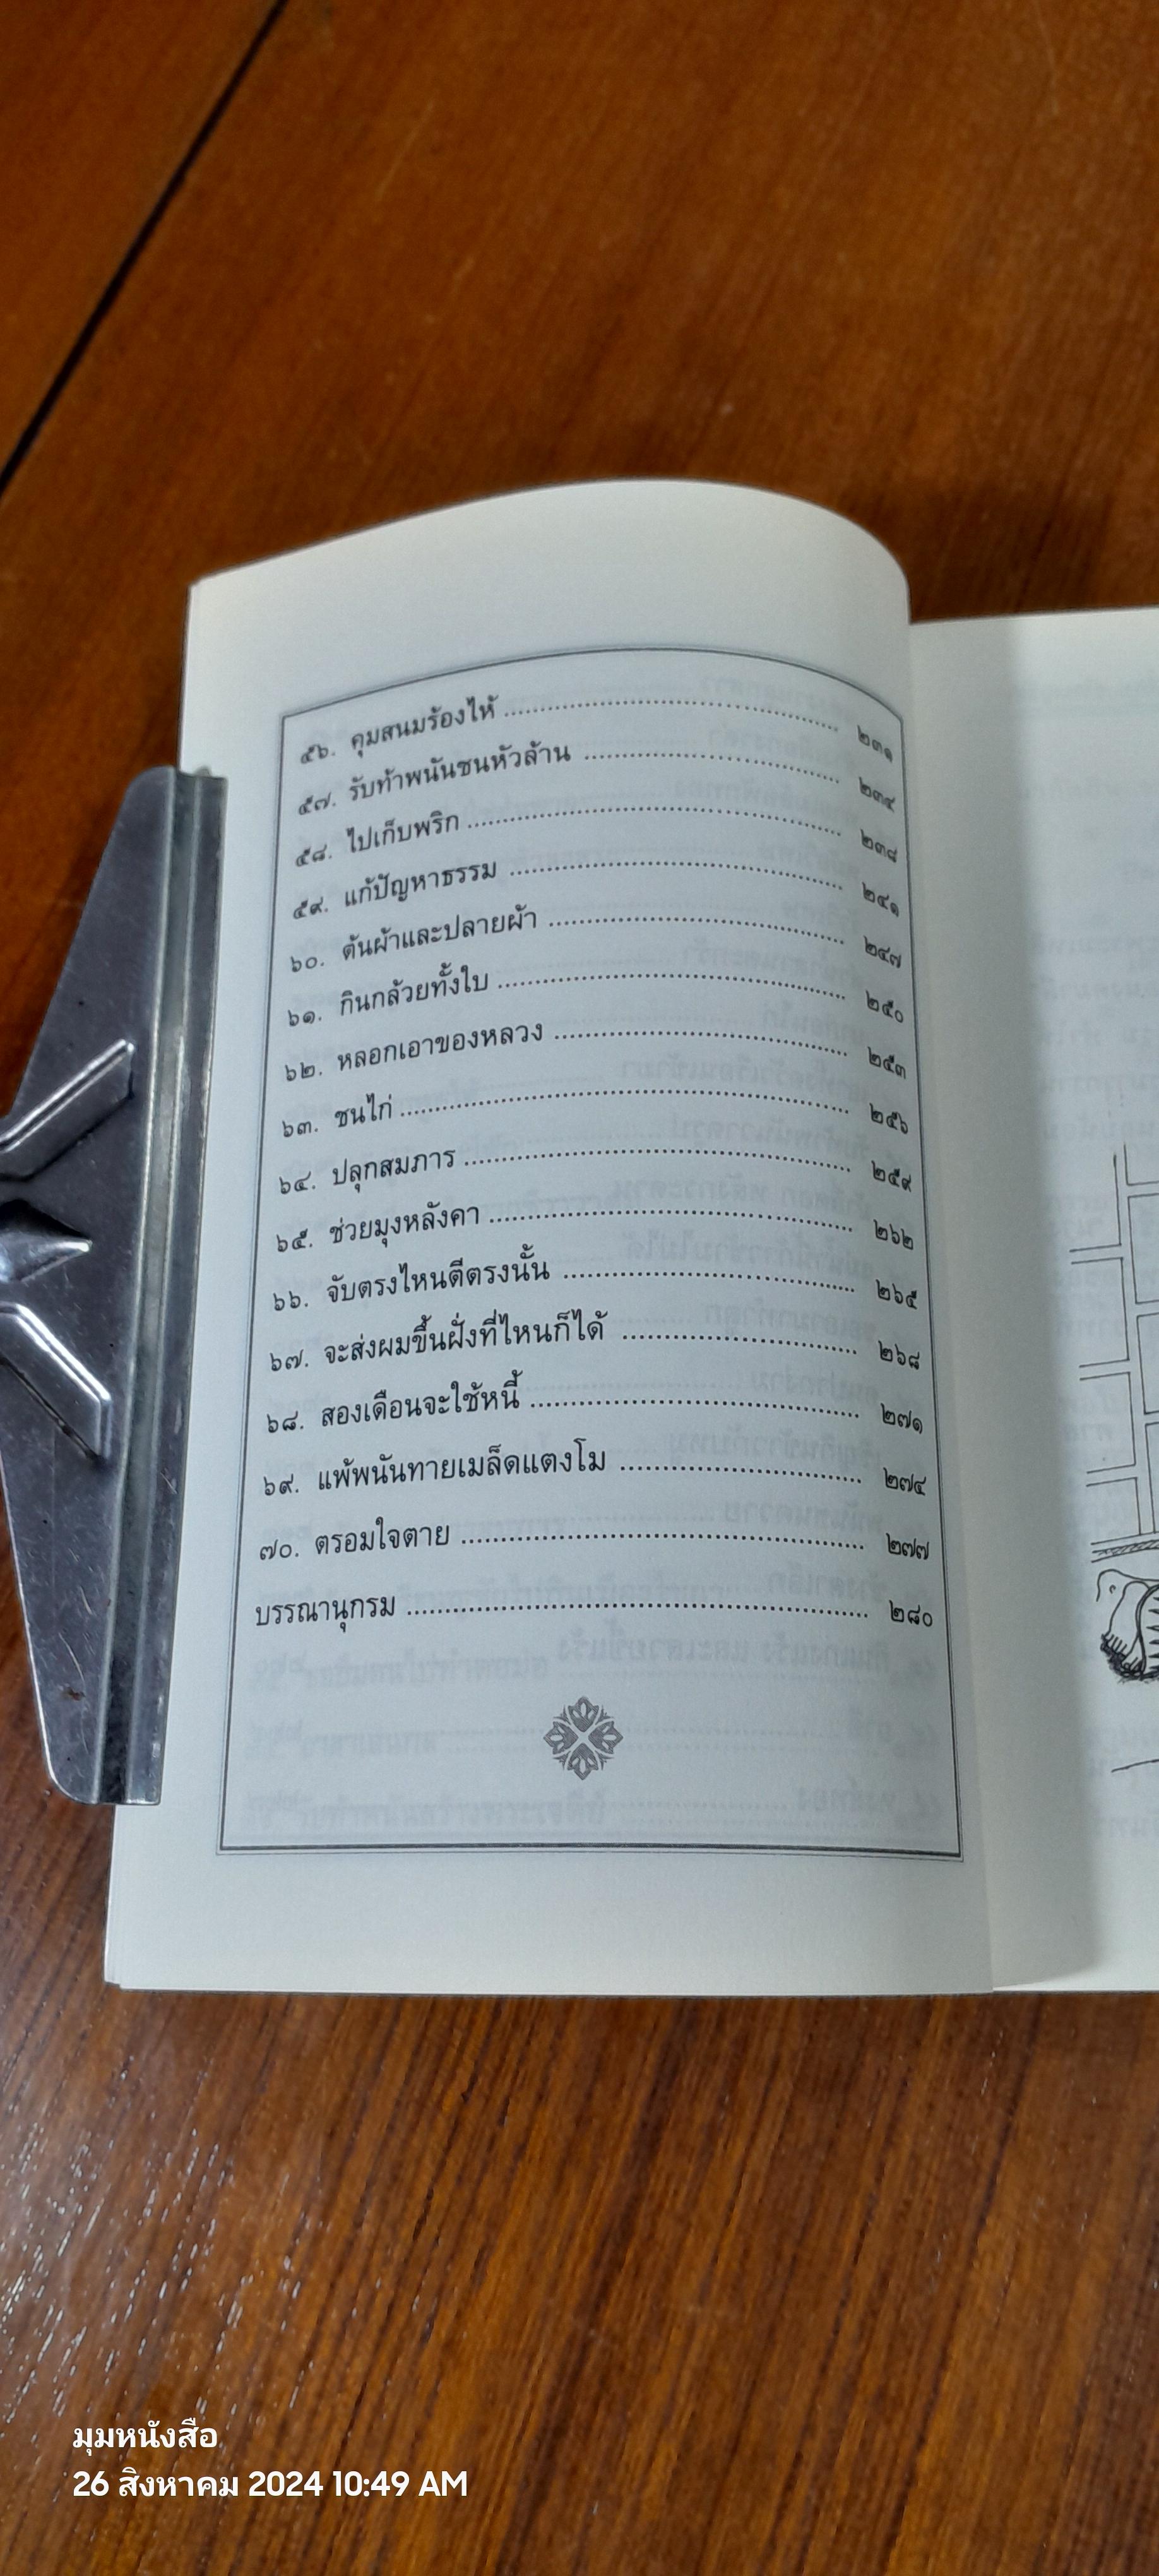 ๕๖. คุมสนมร้องไห้ ........................................ ๒๓๑
๕๗. รับท้าพนันชนหัวล้าน ........................................ ๒๓๔
๕๘. ไปเก็บพริก ........................................ ๒๓๘
๕๙. แก้ปัญหาธรรม ........................................ ๒๔๑
๖๐. ต้นผ้าและปลายผ้า ........................................ ๒๔๗
๖๑. กินกล้วยทั้งใบ ........................................ ๒๕๐
๖๒. หลอกเอาของหลวง ........................................ ๒๕๓
๖๓. ชนไก่ ........................................ ๒๕๖
๖๔. ปลุกสมภาร ........................................ ๒๕๙
๖๕. ช่วยมุงหลังคา ........................................ ๒๖๒
๖๖. จับตรงไหนตีตรงนั้น ........................................ ๒๖๕
๖๗. จะส่งผมขึ้นฝั่งที่ไหนก็ได้ ........................................ ๒๖๘
๖๘. สองเดือนจะใช้หนี้ ........................................ ๒๗๑
๖๙. แพ้พนันทายเมล็ดแตงโม ........................................ ๒๗๔
๗๐. ตรอมใจตาย ........................................ ๒๗๗
บรรณานุกรม ........................................ ๒๘๐
มุมหนังสือ
26 สิงหาคม 2024 10:49 AM